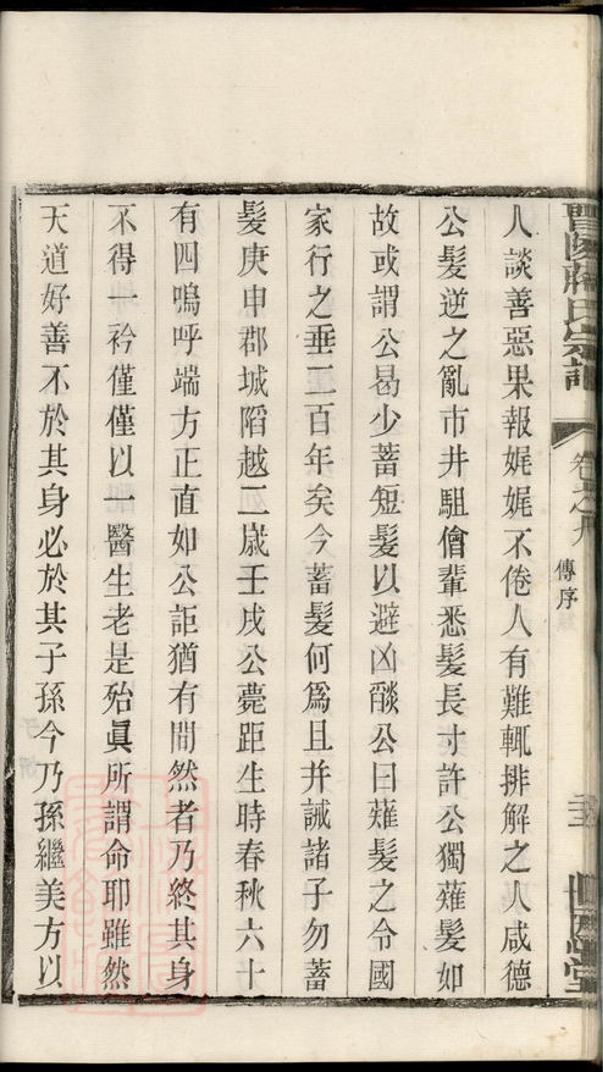 暨陽蔣氏宗譜
卷之九
傳序
世恩堂
人談善惡果報娓娓不倦人有難輒排解之人咸德
公髮逆之亂市井駔儈輩悉髮長寸許公獨薙髮如
故或謂公曷少蓄短髮以避凶燄公曰薙髮之令國
家行之垂二百年矣今蓄髮何爲且并誡諸子勿蓄
髮庚申郡城陷越二歲壬戌公薨距生時春秋六十
有四嗚呼端方正直如公詎猶有間然者乃終其身
不得一衿僅僅以一醫生老是殆眞所謂命耶雖然
天道好善不於其身必於其子孫今乃孫繼美方以